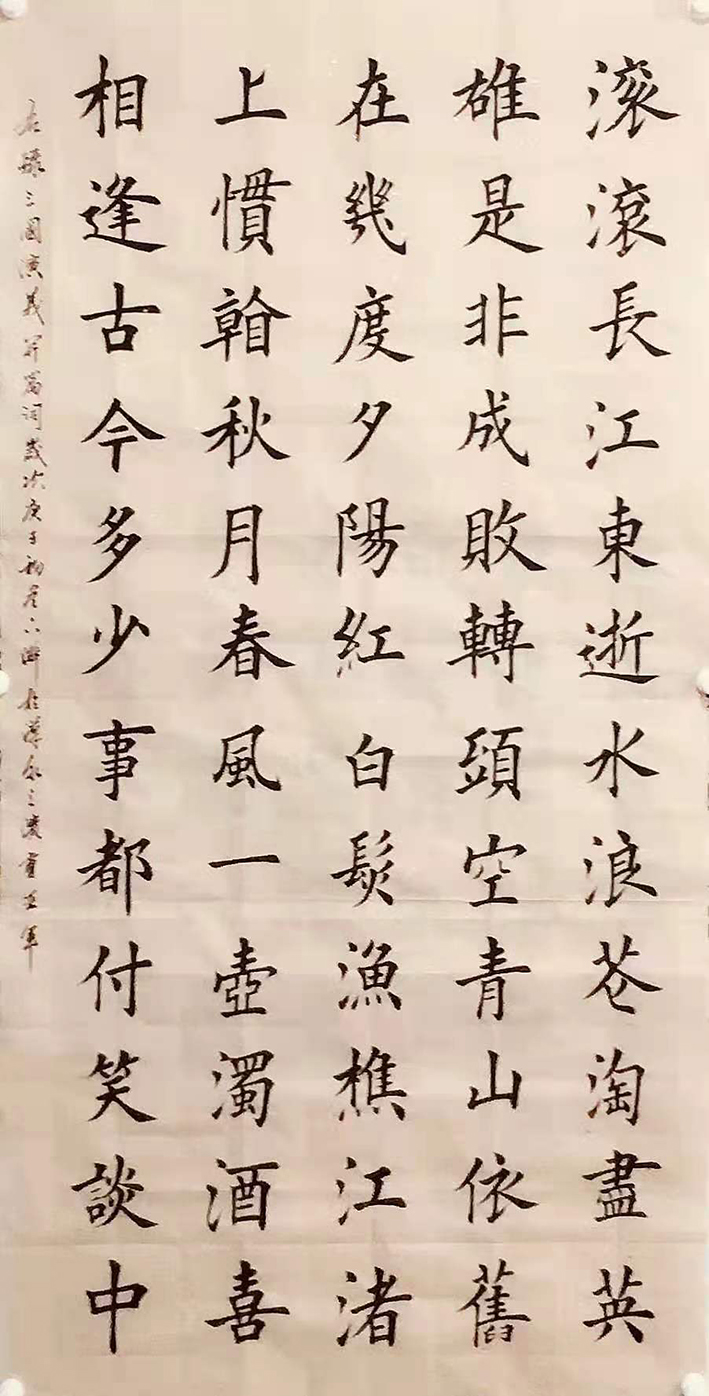 滚滾長江東逝水浪花淘盡英
雄是非成敗轉頭空青山依舊
在幾度夕陽紅白髮漁樵江渚
上慣看秋月春風一壺濁酒喜
相逢古今多少事都付笑談中
錄三國演義開篇詞歲次庚子初